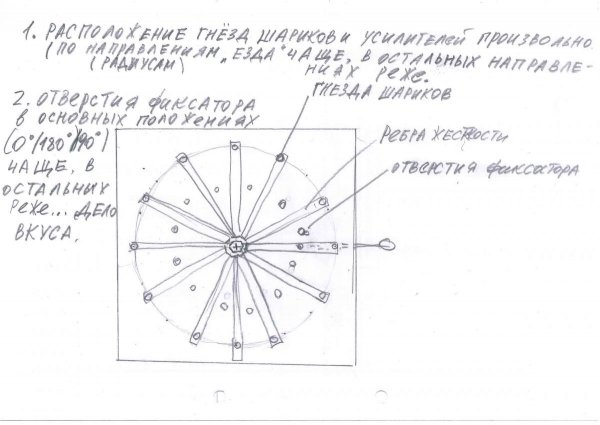 1. РАСПОЛОЖЕНИЕ ГНЁЗД ШАРИКОВ И УСИЛИТЕЛЕЙ ПРОИЗВОЛЬНО
(ПО НАПРАВЛЕНИЯМ „ЕЗДА" ЧАЩЕ, В ОСТАЛЬНЫХ НАПРАВЛЕ-
(РАДИУСАМ)
НИЯХ РЕЖЕ.
2. ОТВЕРСТИЯ ФИКСАТОРА
В ОСНОВНЫХ ПОЛОЖЕНИЯХ
(0°/180°/90°)
ЧАЩЕ, В
ОСТАЛЬНЫХ
РЕЖЕ... ДЕЛО
ВКУСА.
ГНЕЗДА ШАРИКОВ
РЕБРА ЖЕСТКОСТИ
ОТВЕРСТИЯ ФИКСАТОРА